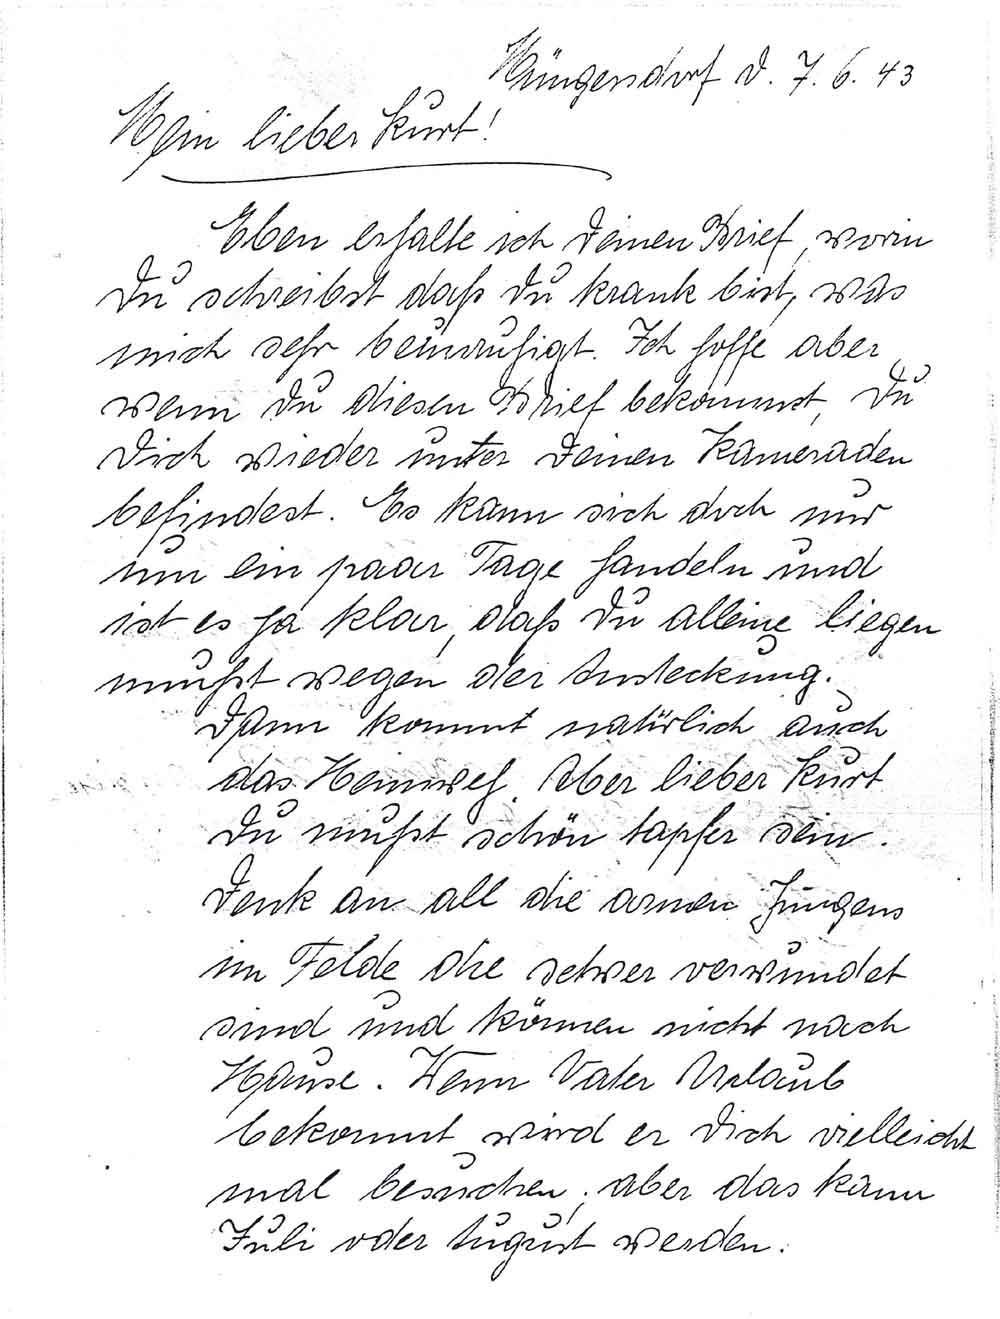 Müngersdorf d. 7. 6. 43
Mein lieber Kurt!
Eben erhalte ich Deinen Brief, worin
Du schreibst daß Du krank bist, was
mich sehr beunruhigt. Ich hoffe aber
wenn Du diesen Brief bekommst, Du
Dich wieder unter Deinen Kameraden
befindest. Es kann sich doch nur
um ein paar Tage handeln und
ist es ja klar, daß Du alleine liegen
mußt wegen der Ansteckung.
Dann kommt natürlich auch
das Heimweh. Aber lieber Kurt
Du mußt schön tapfer sein.
Denk an all die armen Jungens
im Felde die schwer verwundet
sind und können nicht nach
Hause. Wenn Vater Urlaub
bekommt wird er Dich vielleicht
mal besuchen, aber das kann
Juli oder August werden.